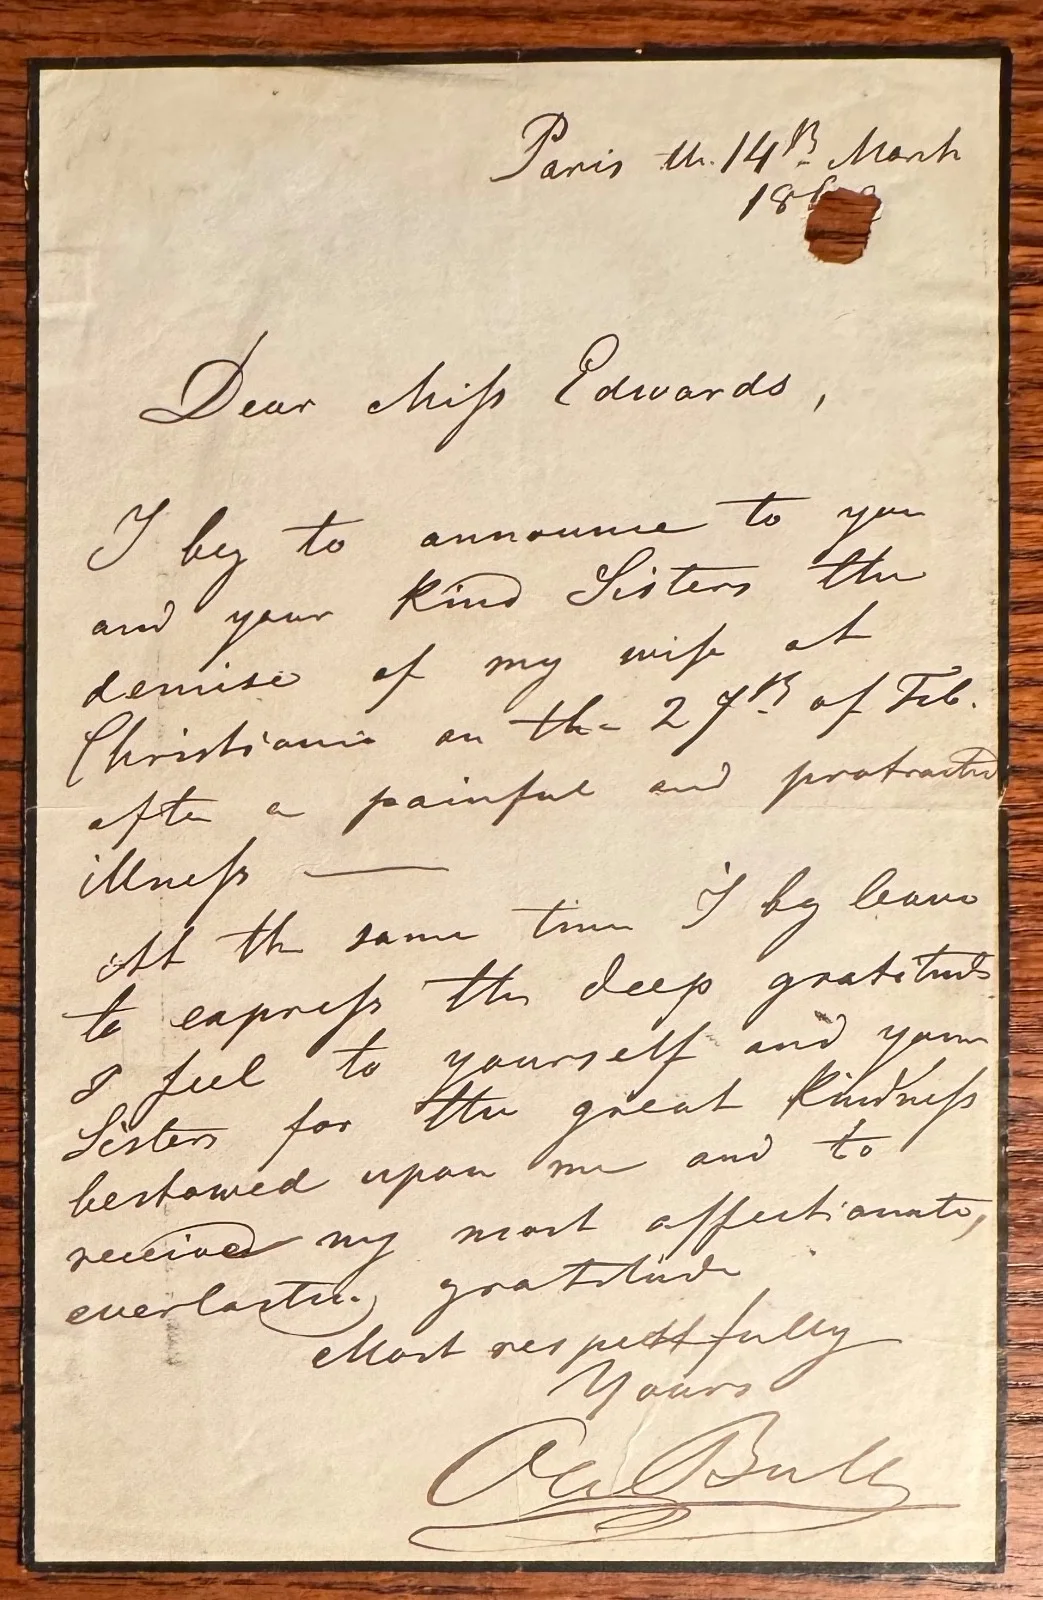 Paris th. 14th March
18
Dear Miss Edwards,
I beg to announce to you
and your kind Sisters the
demise of my wife at
Christiania on the 27th of Feb.
after a painful and protracted
illness —
At the same time I beg leave
to express the deep gratitude
I feel to yourself and your
Sisters for the great kindness
bestowed upon me and to
receive my most affectionate,
everlasting gratitude
Most respectfully
Yours
Ole Bull